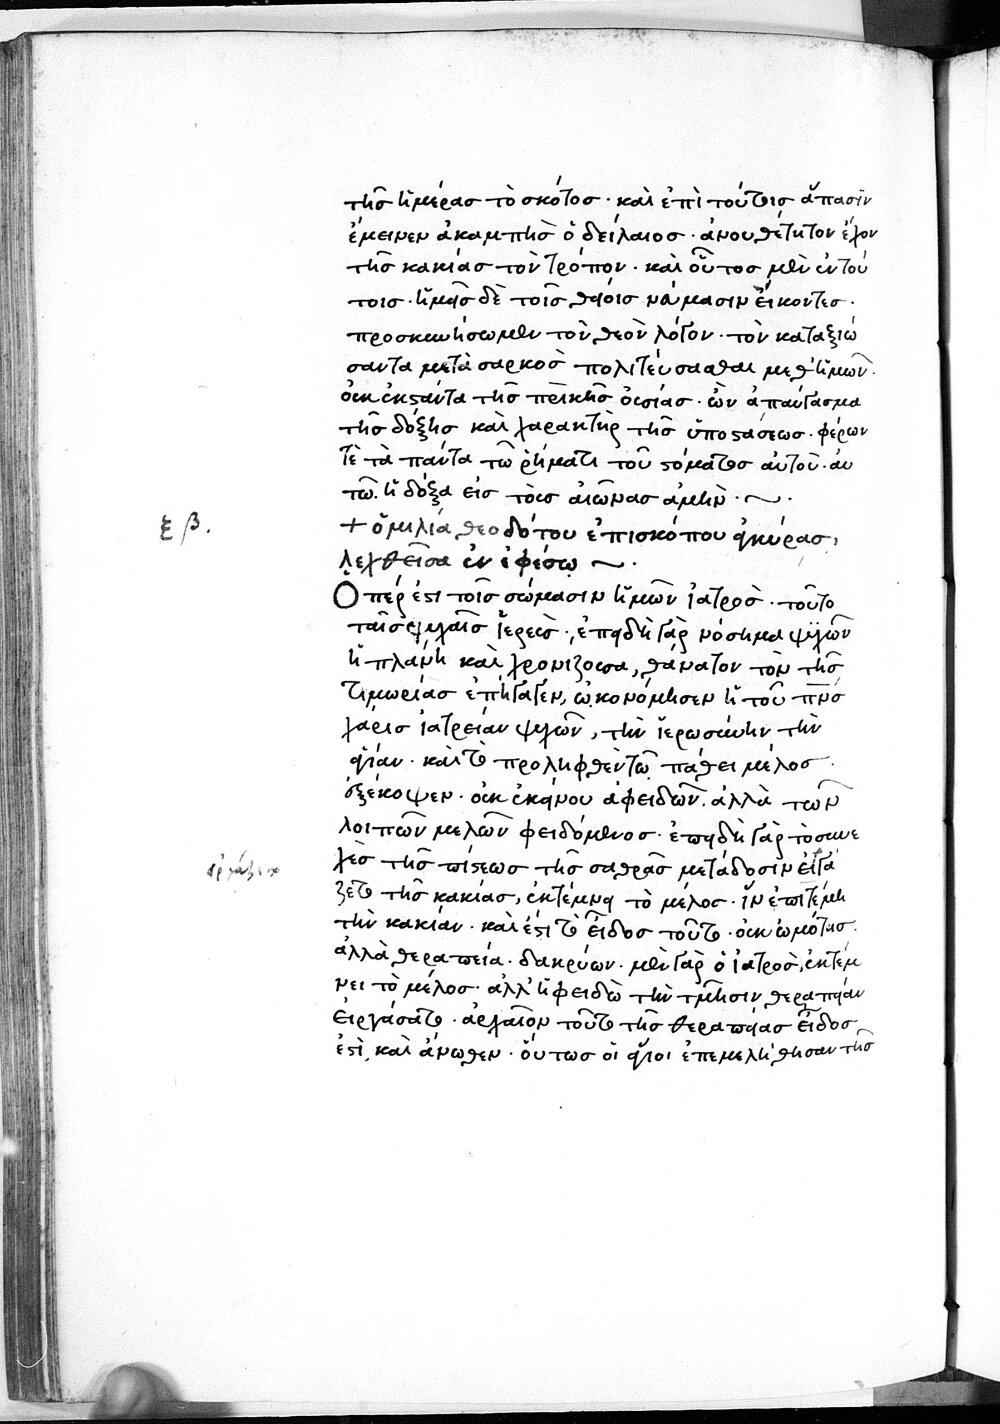 τῆς ἡμέρας τὸ σκότος · καὶ ἐπὶ τούτοις ἅπασιν
ἔμεινεν ἀκαμπὴς ὁ δείλαιος · ἀνουθέτητον ἔχων
τῆς κακίας τὸν τρόπον · καὶ οὗτος μὲν ἐν τού
τοις · ἡμεῖς δὲ τοῖς θείοις νάμασιν εἴκοντες ·
προσκυνήσωμεν τὸν θεὸν λόγον · τὸν καταξιώ
σαντα μετὰ σαρκὸς πολιτεύσασθαι μεθ' ἡμῶν ·
οὐκ ἐκστάντα τῆς πρικῆς οὐσίας · ὢν ἀπαύγασμα
τῆς δόξης καὶ χαρακτὴρ τῆς ὑποστάσεως · φέρων
τὲ τὰ πάντα τῶ ῥήματι τοῦ στόματος αὐτοῦ · αὐ
τῶ ἡ δόξα εἰς τοὺς αἰῶνας ἀμήν ·
ξβ.
+ ὁμιλία θεοδότου ἐπισκόπου ἀγκύρας,
λεχθεῖσα ἐν ἐφέσω ·
Ὅπέρ ἐστι τοῖς σώμασιν ἡμῶν ἰατρὸς · τοῦτο
ταῖς ψυχαῖς ἱερεὺς · ἐπειδὴ γὰρ νόσημα ψυχῶν
ἡ πλάνη καὶ χρονίζουσα, θάνατον τὸν τῆς
τιμωρίας ἐπήγαγεν, ὠκονόμησεν ἡ τοῦ πνς
χάρις ἰατρείαν ψυχῶν, τὴν ἱερωσύνην τὴν
ἁγίαν · καὶ τὸ προληφθὲν τῶ πάθει μέλος
ἐξέκοψεν · οὐκ ἐκείνου ἀφειδῶν · ἀλλὰ τῶν
λοιπῶν μελῶν φειδόμενος · ἐπειδὴ γὰρ τὸ συνε
χὲς τῆς πίστεως τῆς σαθρᾶς μετάδοσιν εἰργά
ζετο τῆς κακίας, ἐκτέμνει τὸ μέλος · ἵν' ἐπιτέμη
τὴν κακίαν · καὶ ἔστι τὸ εἶδος τοῦτο · οὐκ ὠμότης ·
ἀλλὰ θεραπεία · δακρύων · μὲν γὰρ ὁ ἰατρὸς, ἐκτέμ
νει τὸ μέλος · ἀλλ' ἡ φειδὼ τὴν τμῆσιν θεραπείαν
εἰργάσατο · ἀρχαῖον τοῦτο τῆς θεραπείας εἶδος
ἐστὶ, καὶ ἄνωθεν · οὕτως οἱ ἅγιοι ἐπεμελήθησαν τῆς